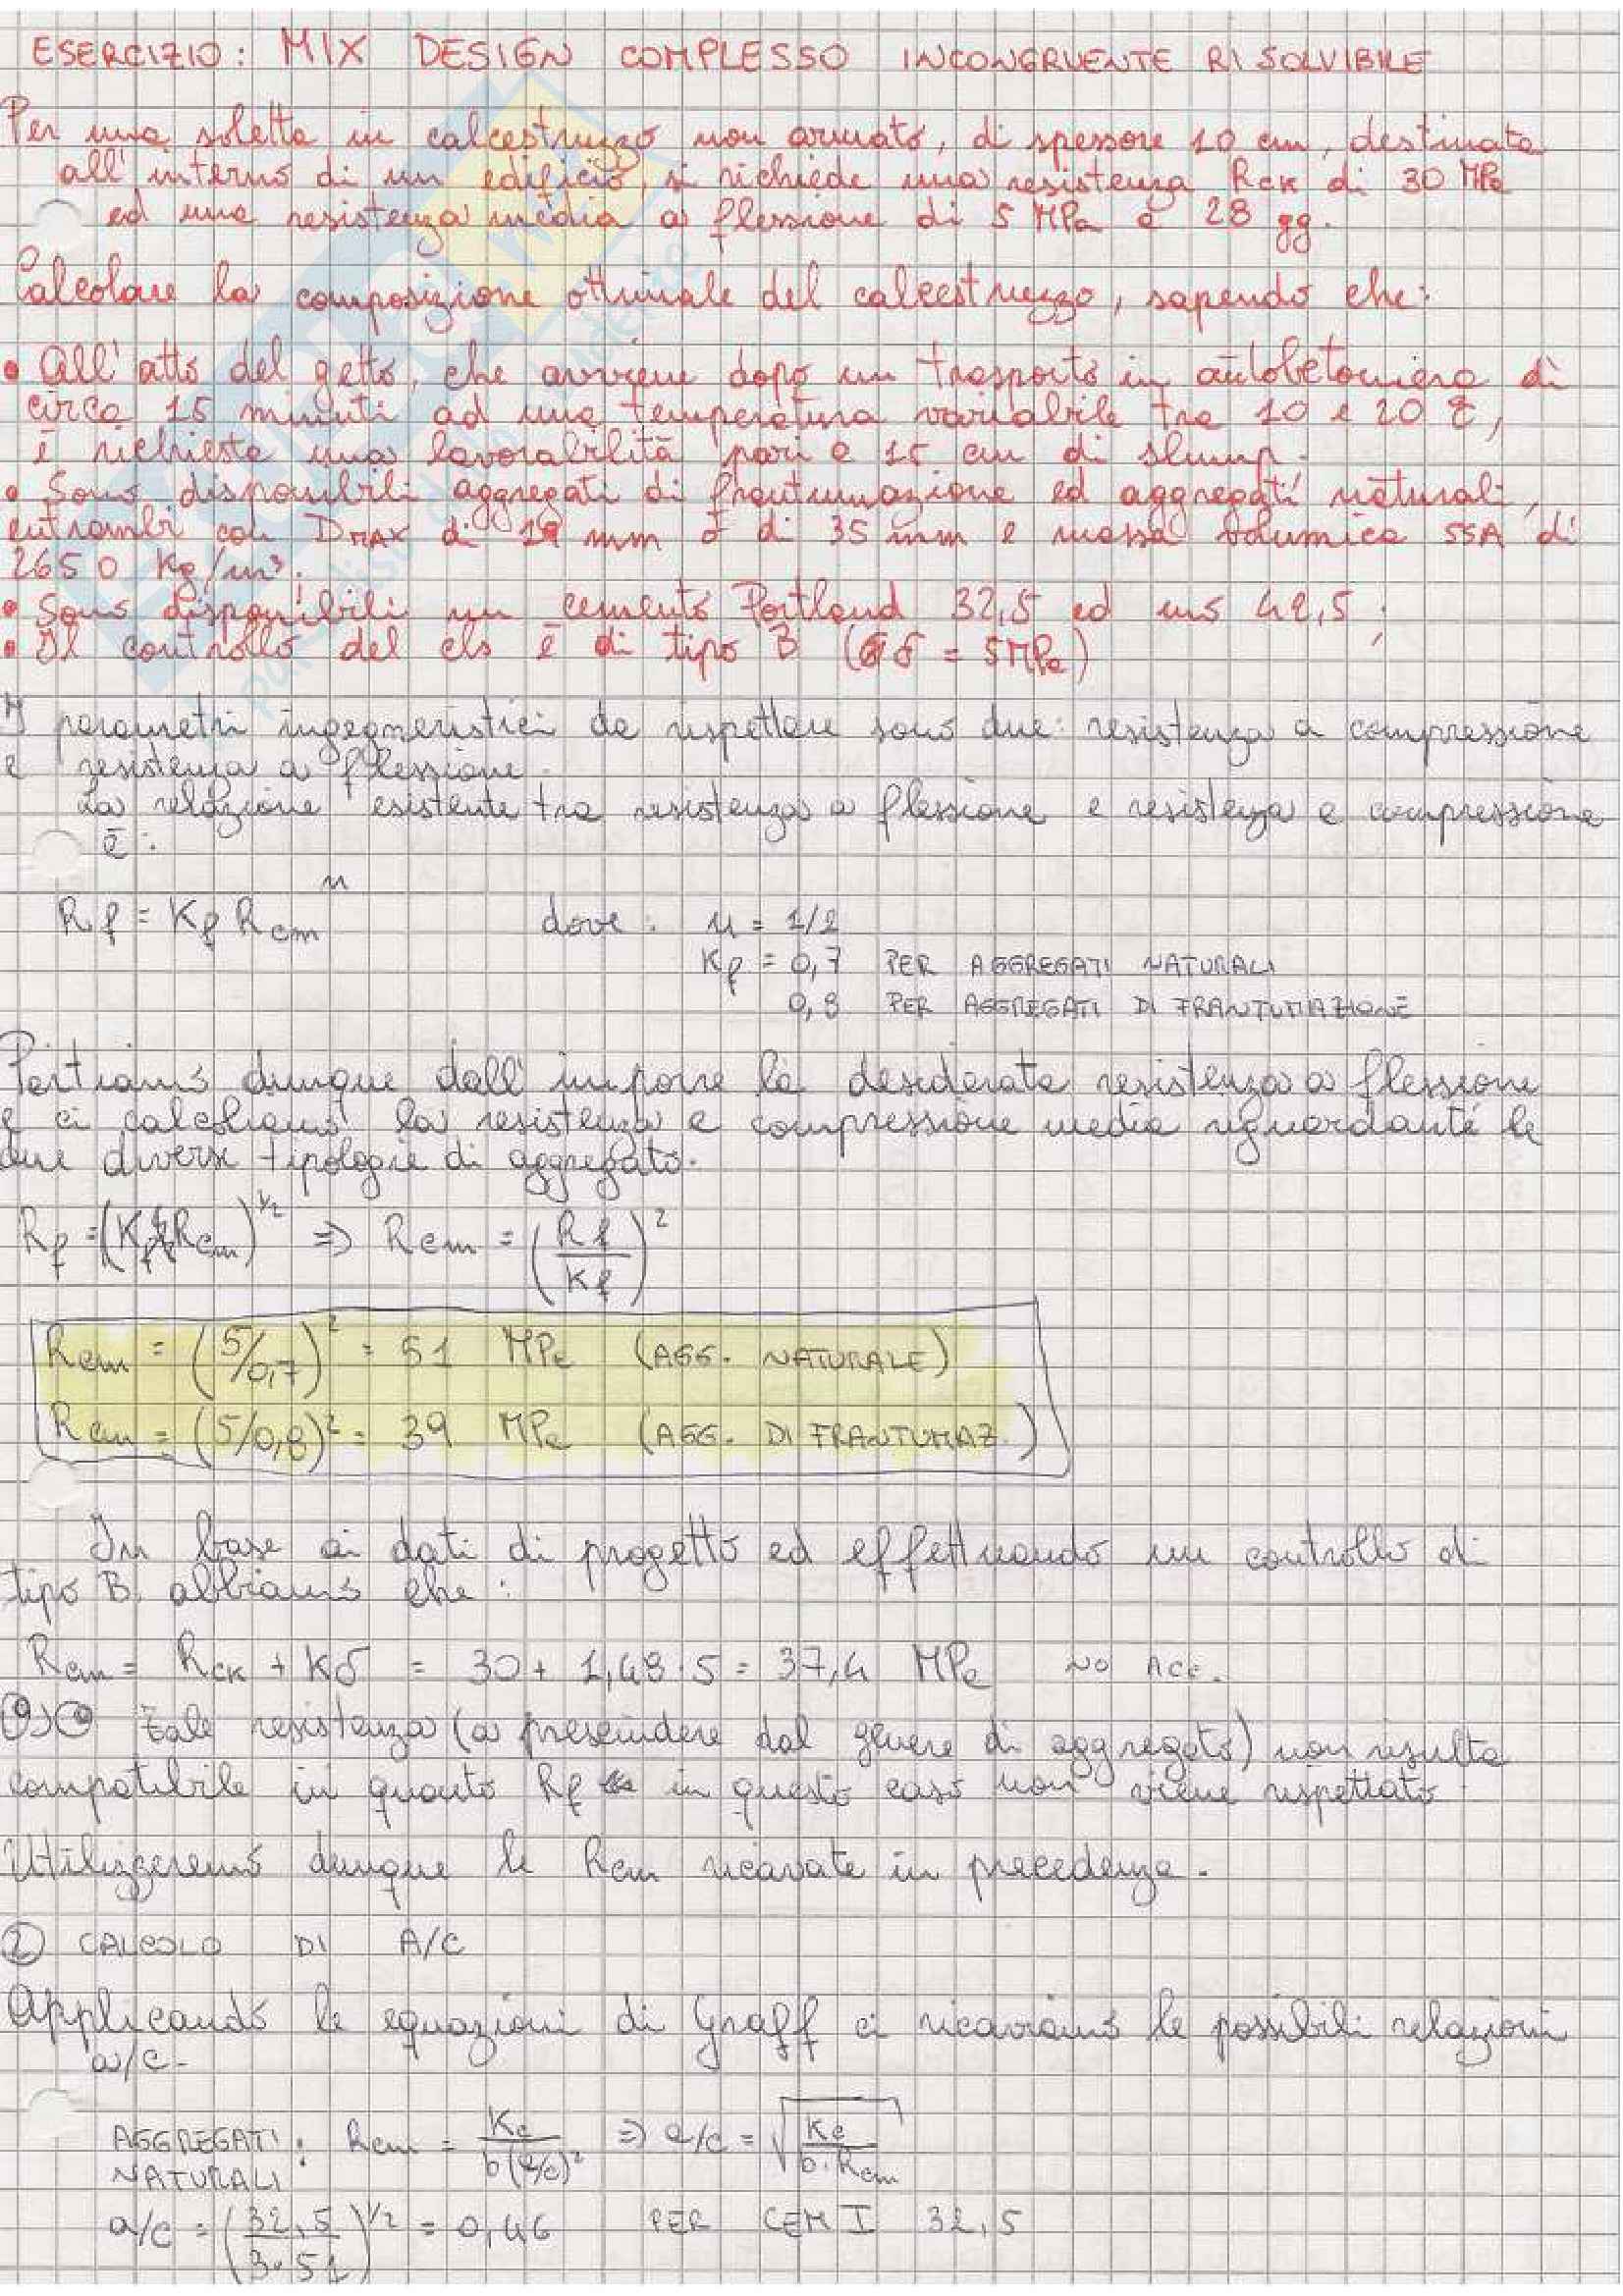 ESERCIZIO: MIX DESIGN COMPLESSO INCONGRUENTE RISOLVIBILE
Per una soletta in calcestruzzo non armato, di spessore 10 cm, destinata
all'interno di un edificio, si richiede una resistenza Rck di 30 MPa
ed una resistenza media a flessione di 5 MPa a 28 gg.
Calcolare la composizione ottimale del calcestruzzo, sapendo che:
• All'atto del getto, che avviene dopo un trasporto in autobetoniera di
circa 15 minuti ad una temperatura variabile tra 10 e 20 °C,
è richiesta una lavorabilità pari a 15 cm di slump.
• Sono disponibili aggregati di frantumazione ed aggregati naturali,
entrambi con DMAX di 19 mm o di 35 mm e massa volumica SSA di
2650 Kg/m³.
• Sono disponibili un cemento Portland 32,5 ed uno 42,5;
• Il controllo del cls è di tipo B (δ = 5MPa)
I parametri ingegneristici da rispettare sono due: resistenza a compressione
e resistenza a flessione.
La relazione esistente tra resistenza a flessione e resistenza a compressione
è:
Rf = Kf Rcm^n dove: n = 1/2
Kf = 0,7 PER AGGREGATI NATURALI
0,8 PER AGGREGATI DI FRANTUMAZIONE
Partiamo dunque dall'imporre la desiderata resistenza a flessione
e ci calcoliamo la resistenza a compressione media riguardante le
due diverse tipologie di aggregato.
Rf = (Kf Rcm)^1/2 => Rcm = (Rf/Kf)²
Rcm = (5/0,7)² = 51 MPa (AGG. NATURALE)
Rcm = (5/0,8)² = 39 MPa (AGG. DI FRANTUMAZ.)
In base ai dati di progetto ed effettuando un controllo di
tipo B, abbiamo che:
Rcm = Rck + Kδ = 30 + 1,48·5 = 37,4 MPa NO ACC.
Tale resistenza (a prescindere dal genere di aggregato) non risulta
compatibile in quanto Rf in questo caso non viene rispettato
Utilizzeremo dunque le Rcm ricavate in precedenza.
② CALCOLO DI A/C
Applicando le equazioni di Graff ci ricaviamo le possibili relazioni
a/c.
AGGREGATI NATURALI: Rcm = Kc/b(a/c)² => a/c = √(Kc/b·Rcm)
a/c = (32,5/3·51)^1/2 = 0,46 PER CEM I 32,5